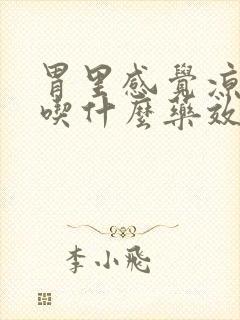 胃里感覺涼
喫什麼藥效
李小飛